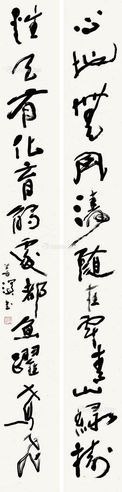 心地無風濤隨在皆青山綠樹
性天有化育觸處都魚躍鳶飛